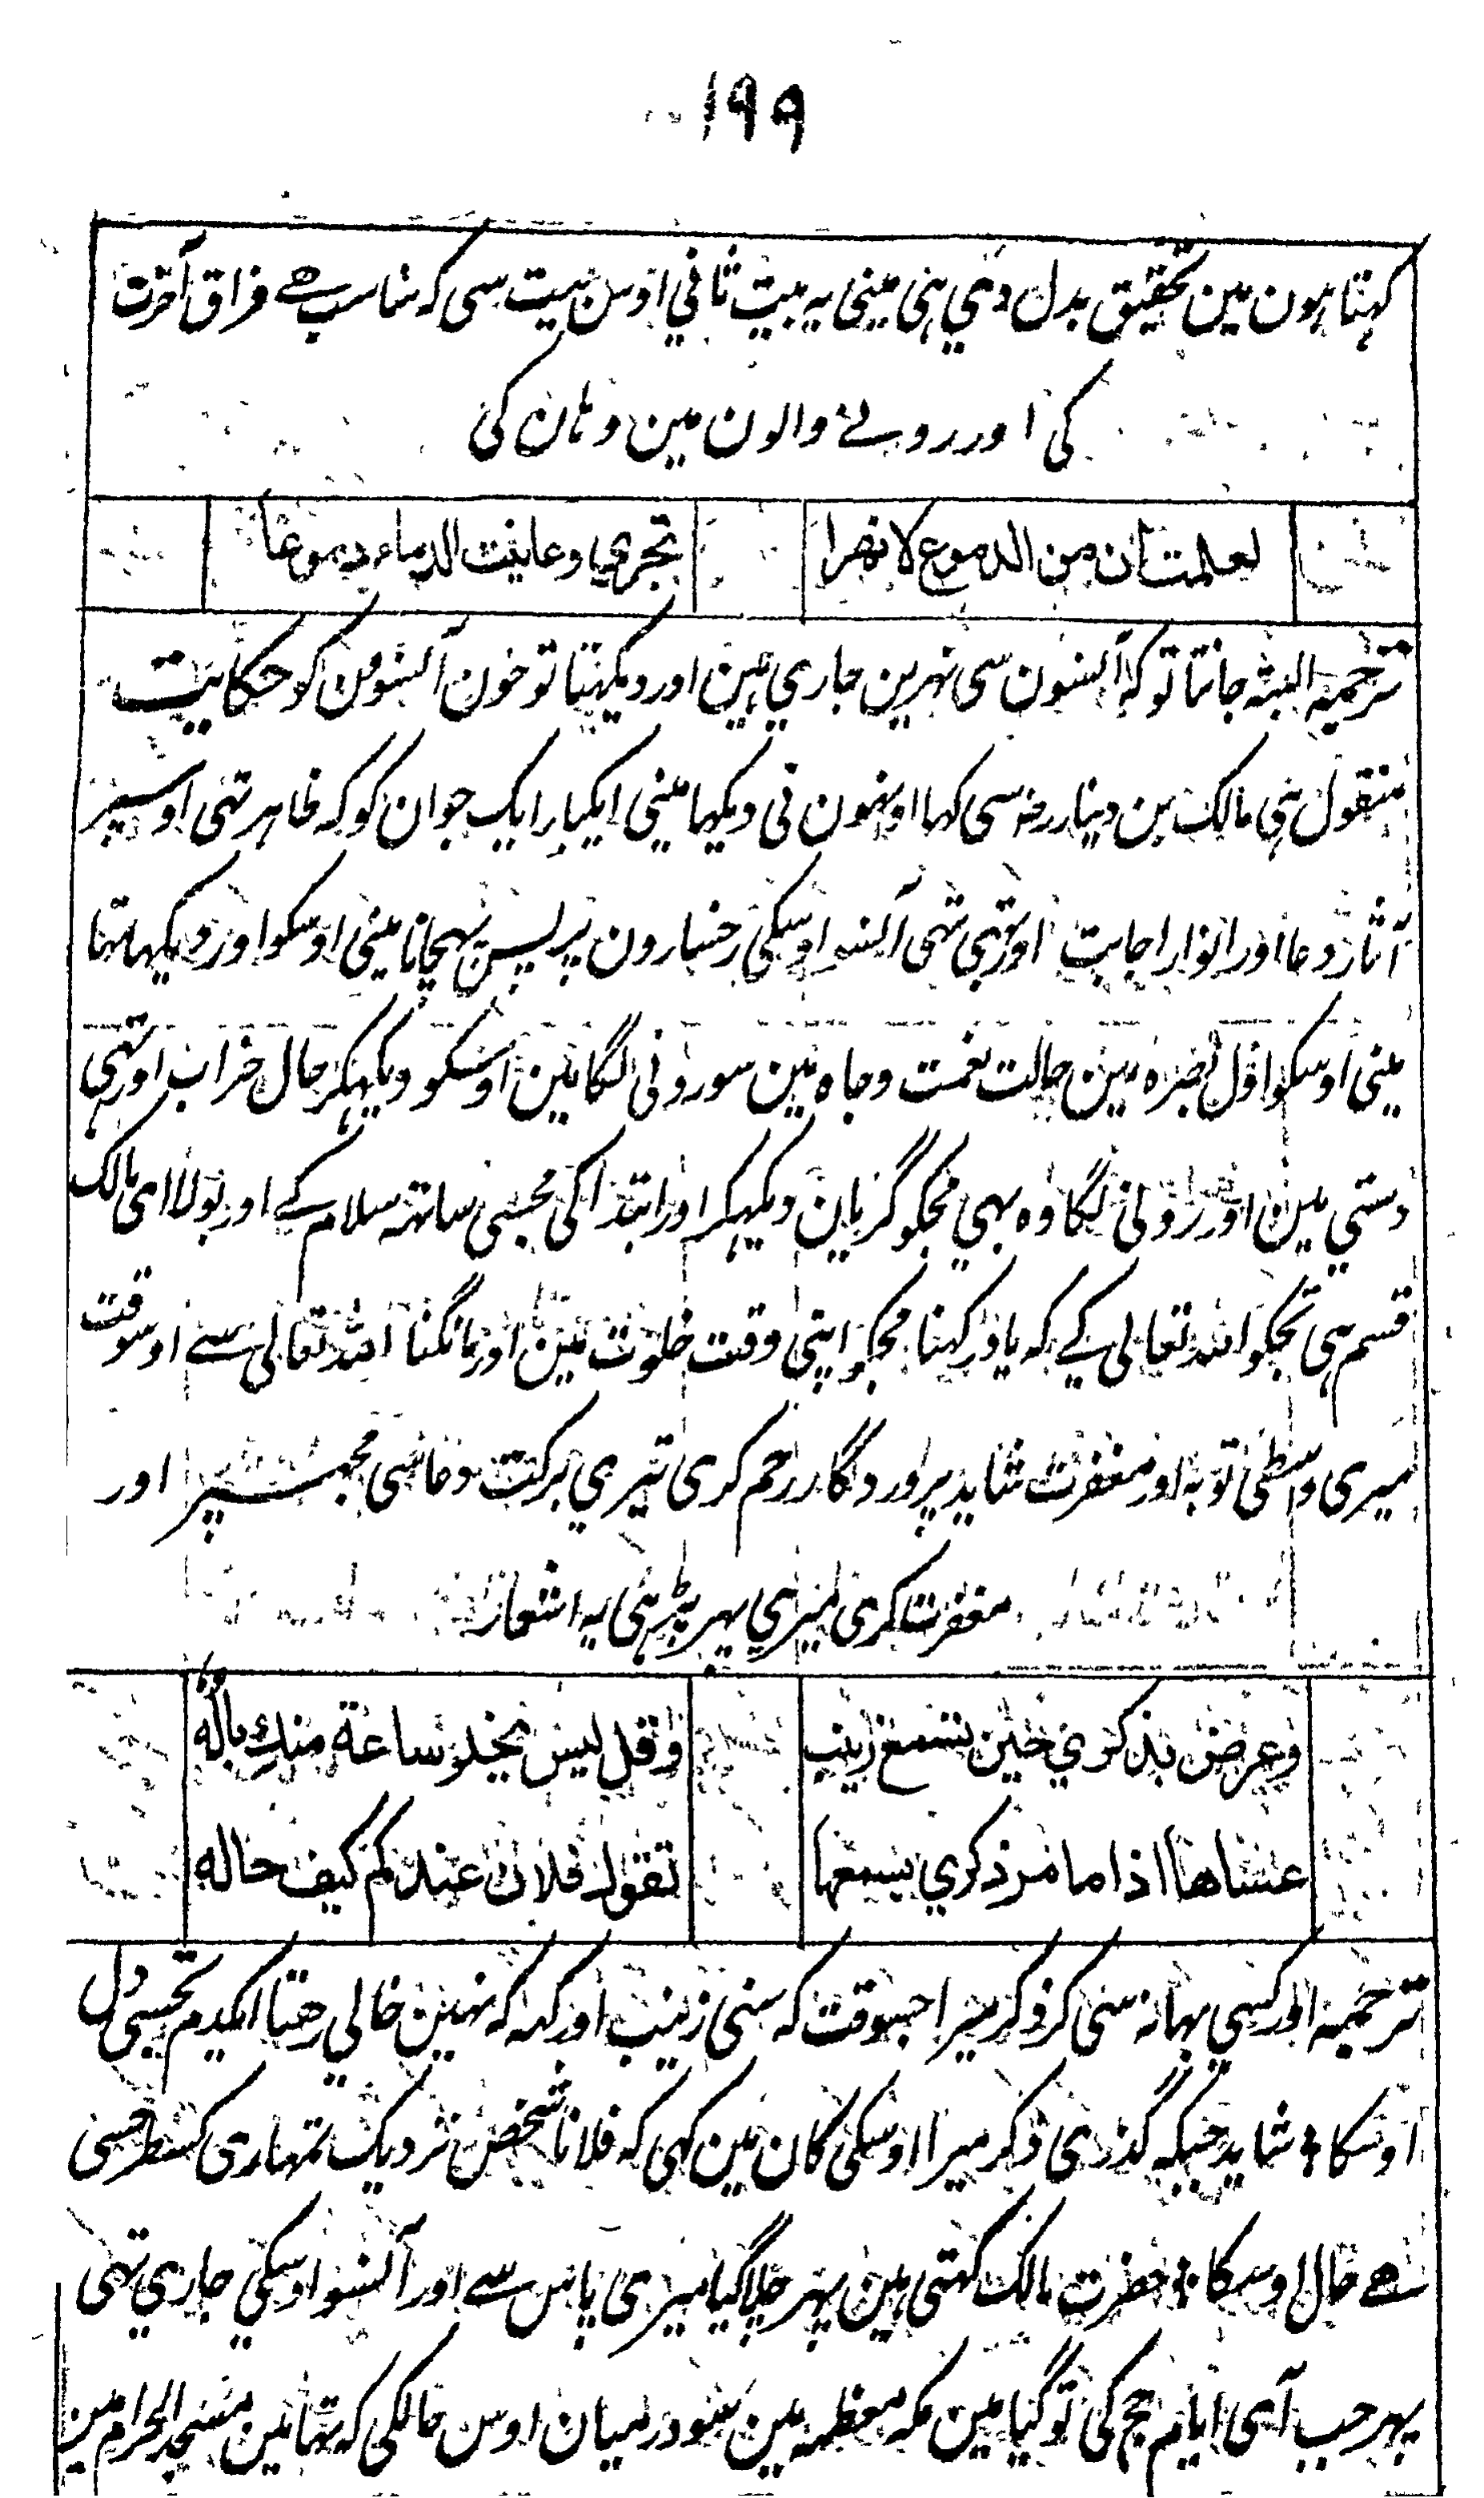 ١٩٩
کہتا ہون مین تحقیق بدل دی ہی مینی یہ بیت ثانی اوس بیت سی کہ مناسب ہے فراق آخرت
کی اور رونے والون مین وہان کی
لعلمت ان من الدموع لانهرا
تجري وعاينت الدماء دموعا
ترجمہ البتہ جانتا تو کہ آنسون سی نہرین جاری ہین اور دیکہتا تو خون آنسوون کو حکایت
منقول ہی مالک بن دینار رح سی کہا اونہون نی دیکہا مینی ایکبار ایک جوان کو کہ ظاہر تہی اوسپر
آثار دعا اور انوار اجابت اور بہتی تہی آنسو اوسکی رخسارون پر پس پہچانا مینی اوسکو اور دیکہا تہا
مینی اوسکو اول بصرہ مین حالت نعمت وجاہ مین سو رونی لگا مین اوسکو دیکہکر حال خراب اور تہی
دستی مین اور رونی لگا وہ بہی مجکو گریان دیکہکر اور ابتدا کی مجسی ساتہہ سلام کے اور بولا ای مالک
قسم ہی تجکو اللہ تعالی کے کہ یاد رکہنا مجکو اپنی وقت خلوت مین اور مانگنا اللہ تعالی سے اوسوقت
میری واسطی توبہ اور مغفرت شاید پروردگار رحم کری تیری برکت دعا سی مجہپر اور
مغفرت کری میری پہر پڑہی یہ اشعار
وعرض بذكري حين تسمع زينب
وقل ليس يخلو ساعة منك باله
عساها اذا ما مر ذكري بسمعها
تقول فلان عندكم كيف حاله
ترجمہ اور کسی بہانہ سی کر ذکر میرا جسوقت کہ سنی زینب اور کہہ کہ نہین خالی رہتا ایکدم تجسی دل
اوسکا ؛ شاید جبکہ گذری ذکر میرا اوسکی کان مین کہی کہ فلانا شخص نزدیک تمہاری کسطرحسی
ہے حال اوسکا ؛ حضرت مالک کہتی ہین پہر چلا گیا میری پاس سے اور آنسو اوسکی جاری تہی
پہر جب آی ایام حج کی تو گیا مین مکہ معظمہ مین سو درمیان اوس حالکی کہ تہا مین مسجد الحرام مین